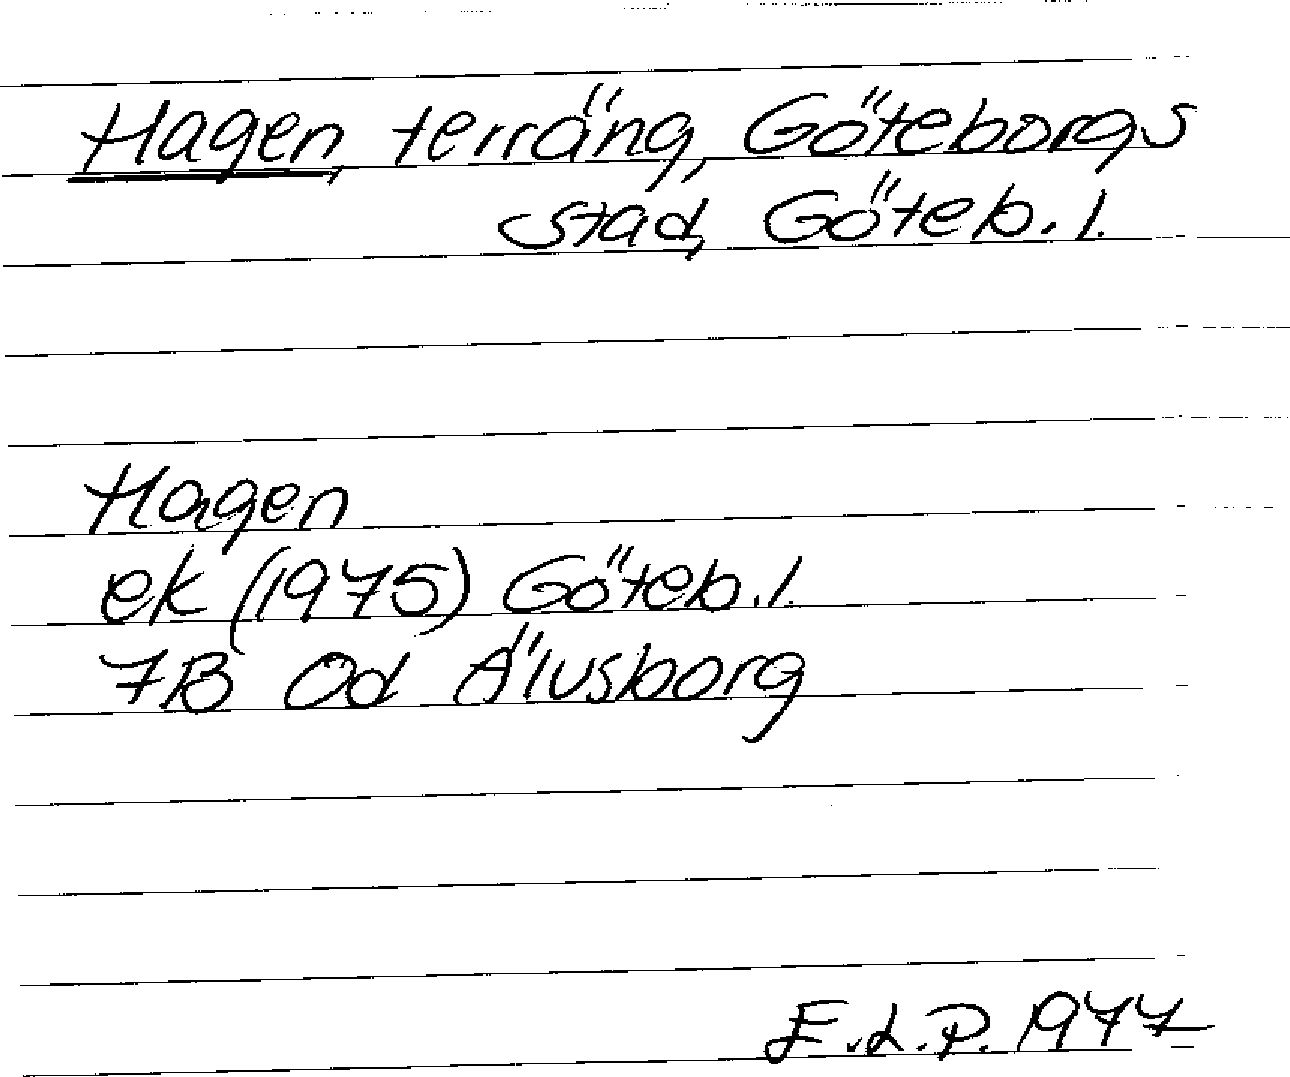 Hagen, terräng, Göteborgs
stad, Göteb. l.
Hagen
ek (1975) Göteb. l.
7B 0d Älvsborg
E.L.P. 1977